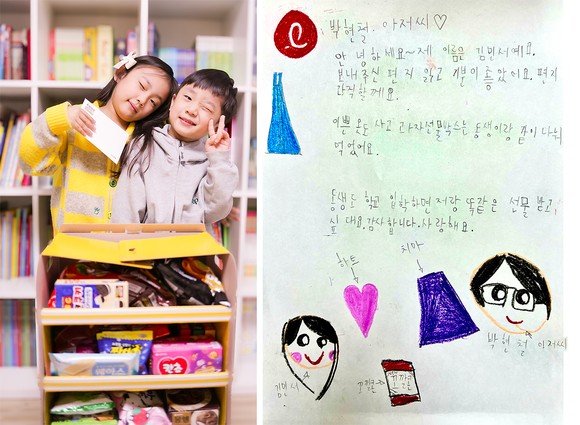 박현철 아저씨♡
안녕하세요~ 제 이름은 김민서예요.
보내주신 편지 읽고 기분이 좋았어요. 편지
간직할게요.
예쁜 옷도 사고 과자선물박스는 동생이랑 같이 나눠
먹었어요.
동생도 학교 입학하면 저랑 똑같은 선물 받고
싶대요. 감사합니다. 사랑해요.
하트
치마
박현철 아저씨
김민서